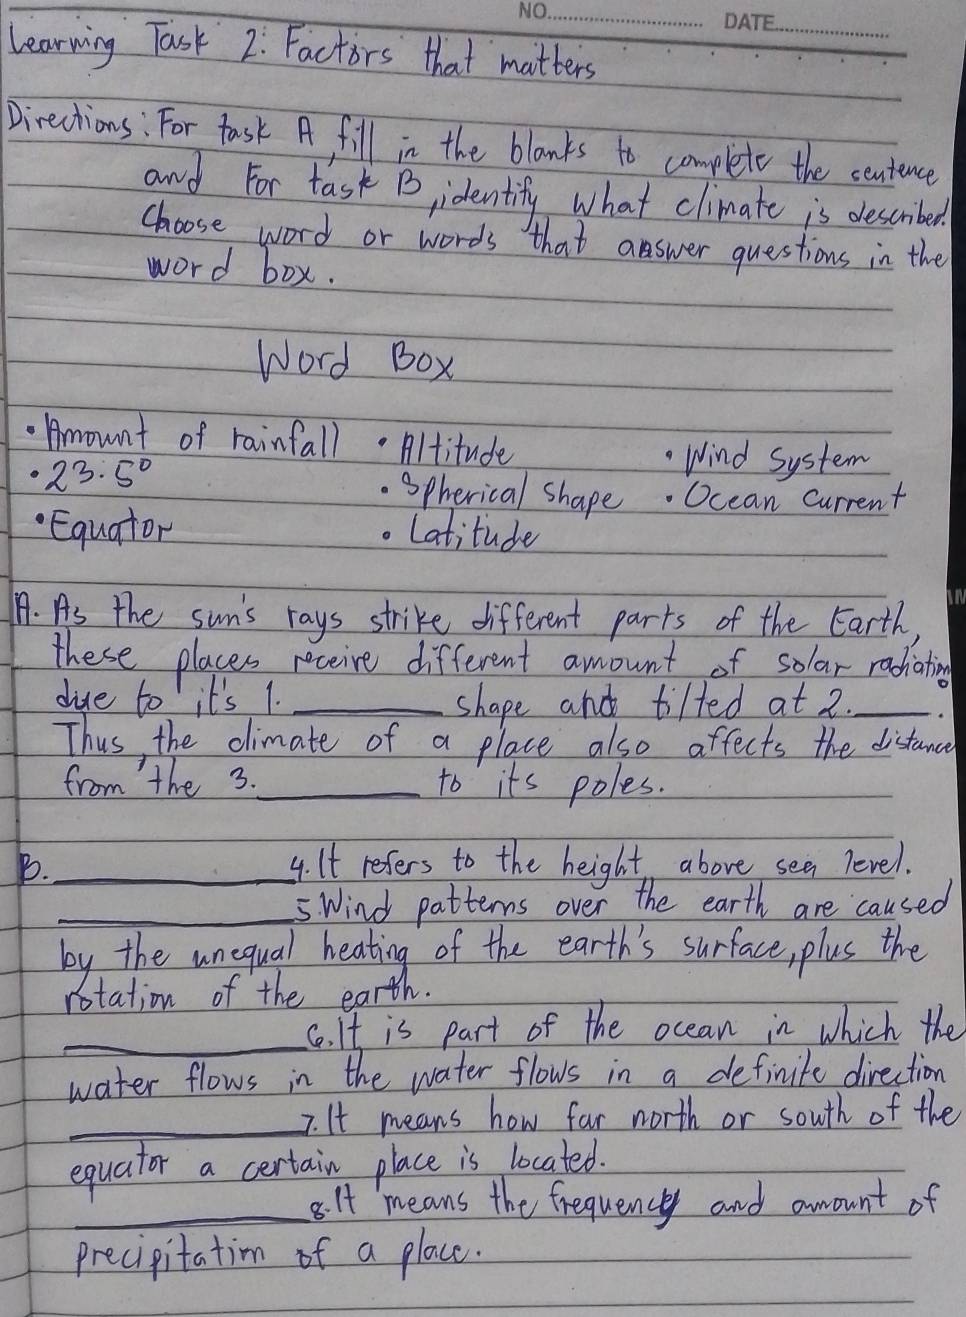 NO. DATE
Learning Task 2: Factors that matters
Directions: For task A, fill in the blanks to complete the sentence
and For task B, identify what climate is described.
Choose word or words that answer questions in the
word box.
Word Box
• Amount of rainfall • Altitude • Wind System
• 23.5° • Spherical shape • Ocean Current
• Equator • Latitude
A. As the sun's rays strike different parts of the Earth,
these places receive different amount of solar radiation
due to it's 1. ________ shape and tilted at 2. ____.
Thus, the climate of a place also affects the distance
from the 3. ________ to its poles.
B. ____________ 4. It refers to the height above sea level.
____________ 5. Wind patterns over the earth are caused
by the unequal heating of the earth's surface, plus the
rotation of the earth.
____________ 6. It is part of the ocean in which the
water flows in the water flows in a definite direction
____________ 7. It means how far north or south of the
equator a certain place is located.
____________ 8. It means the frequency and amount of
precipitation of a place.